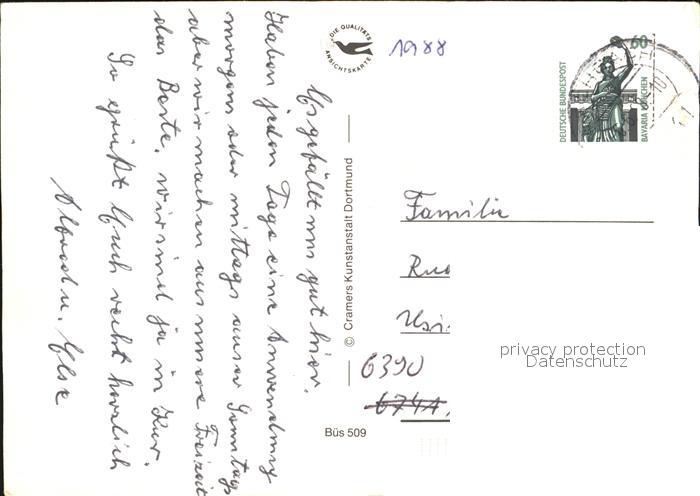 Es gefällt uns gut hier.
Haben jeden Tage eine Anwendung
morgens oder mittags auser Sonntags
aber wir machen aus unsere Freizeit
das Beste, wir sind ja in Kur.
So grüßt Euch recht herzlich
u. Else
DIE QUALITÄTS
ANSICHTSKARTE
1988
© Cramers Kunstanstalt Dortmund
Büs 509
60
DEUTSCHE BUNDESPOST
BAVARIA MÜNCHEN
Familie
6390
6741
privacy protection
Datenschutz